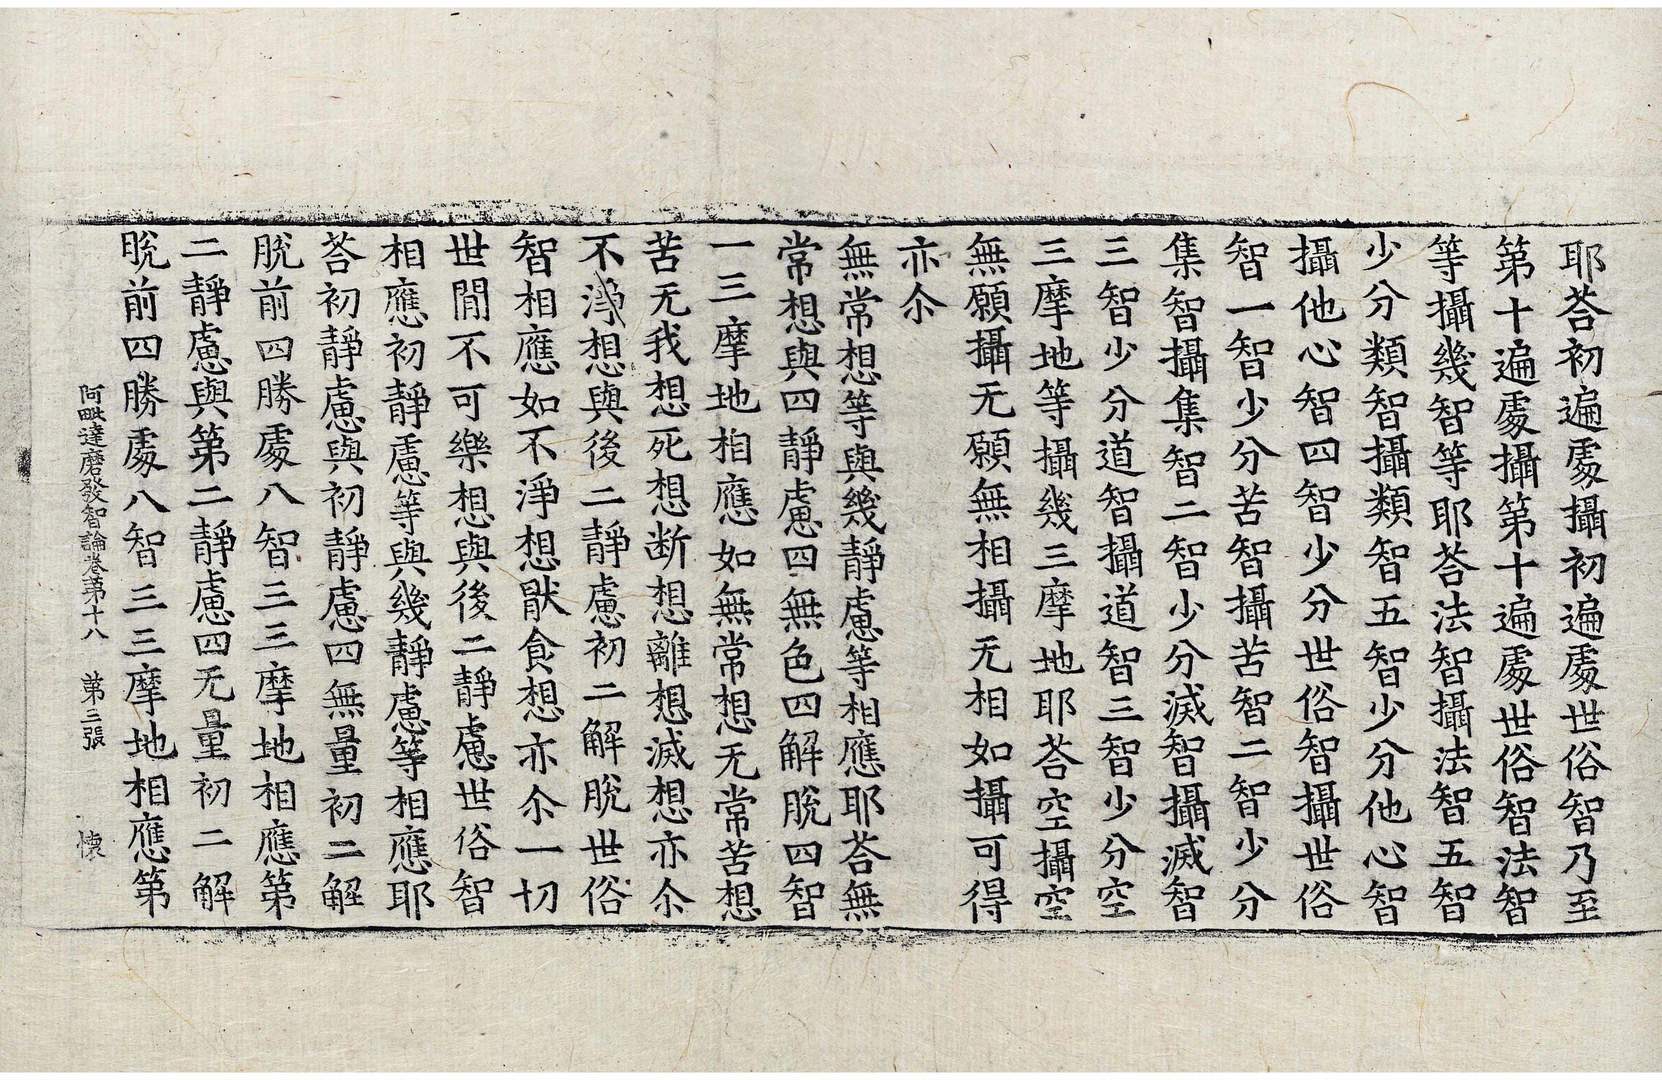 耶荅初遍處攝初遍處世俗智乃至
第十遍處攝第十遍處世俗智法智
等攝幾智等耶荅法智攝法智五智
少分類智攝類智五智少分他心智
攝他心智四智少分世俗智攝世俗
智一智少分苦智攝苦智二智少分
集智攝集智二智少分滅智攝滅智
三智少分道智攝道智三智少分空
三摩地等攝幾三摩地耶荅空攝空
無願攝无願無相攝无相如攝可得
亦尒
無常想等與幾靜慮等相應耶荅無
常想與四靜慮四無色四解脫四智
一三摩地相應如無常想无常苦想
苦无我想死想断想離想滅想亦尒
不淨想與後二靜慮初二解脫世俗
智相應如不淨想猒食想亦尒一切
世間不可樂想與後二靜慮世俗智
相應初靜慮等與幾靜慮等相應耶
荅初靜慮與初靜慮四無量初二解
脫前四勝處八智三三摩地相應第
二靜慮與第二靜慮四无量初二解
脫前四勝處八智三三摩地相應第
阿毗達磨發智論卷第十八 第三張 懐